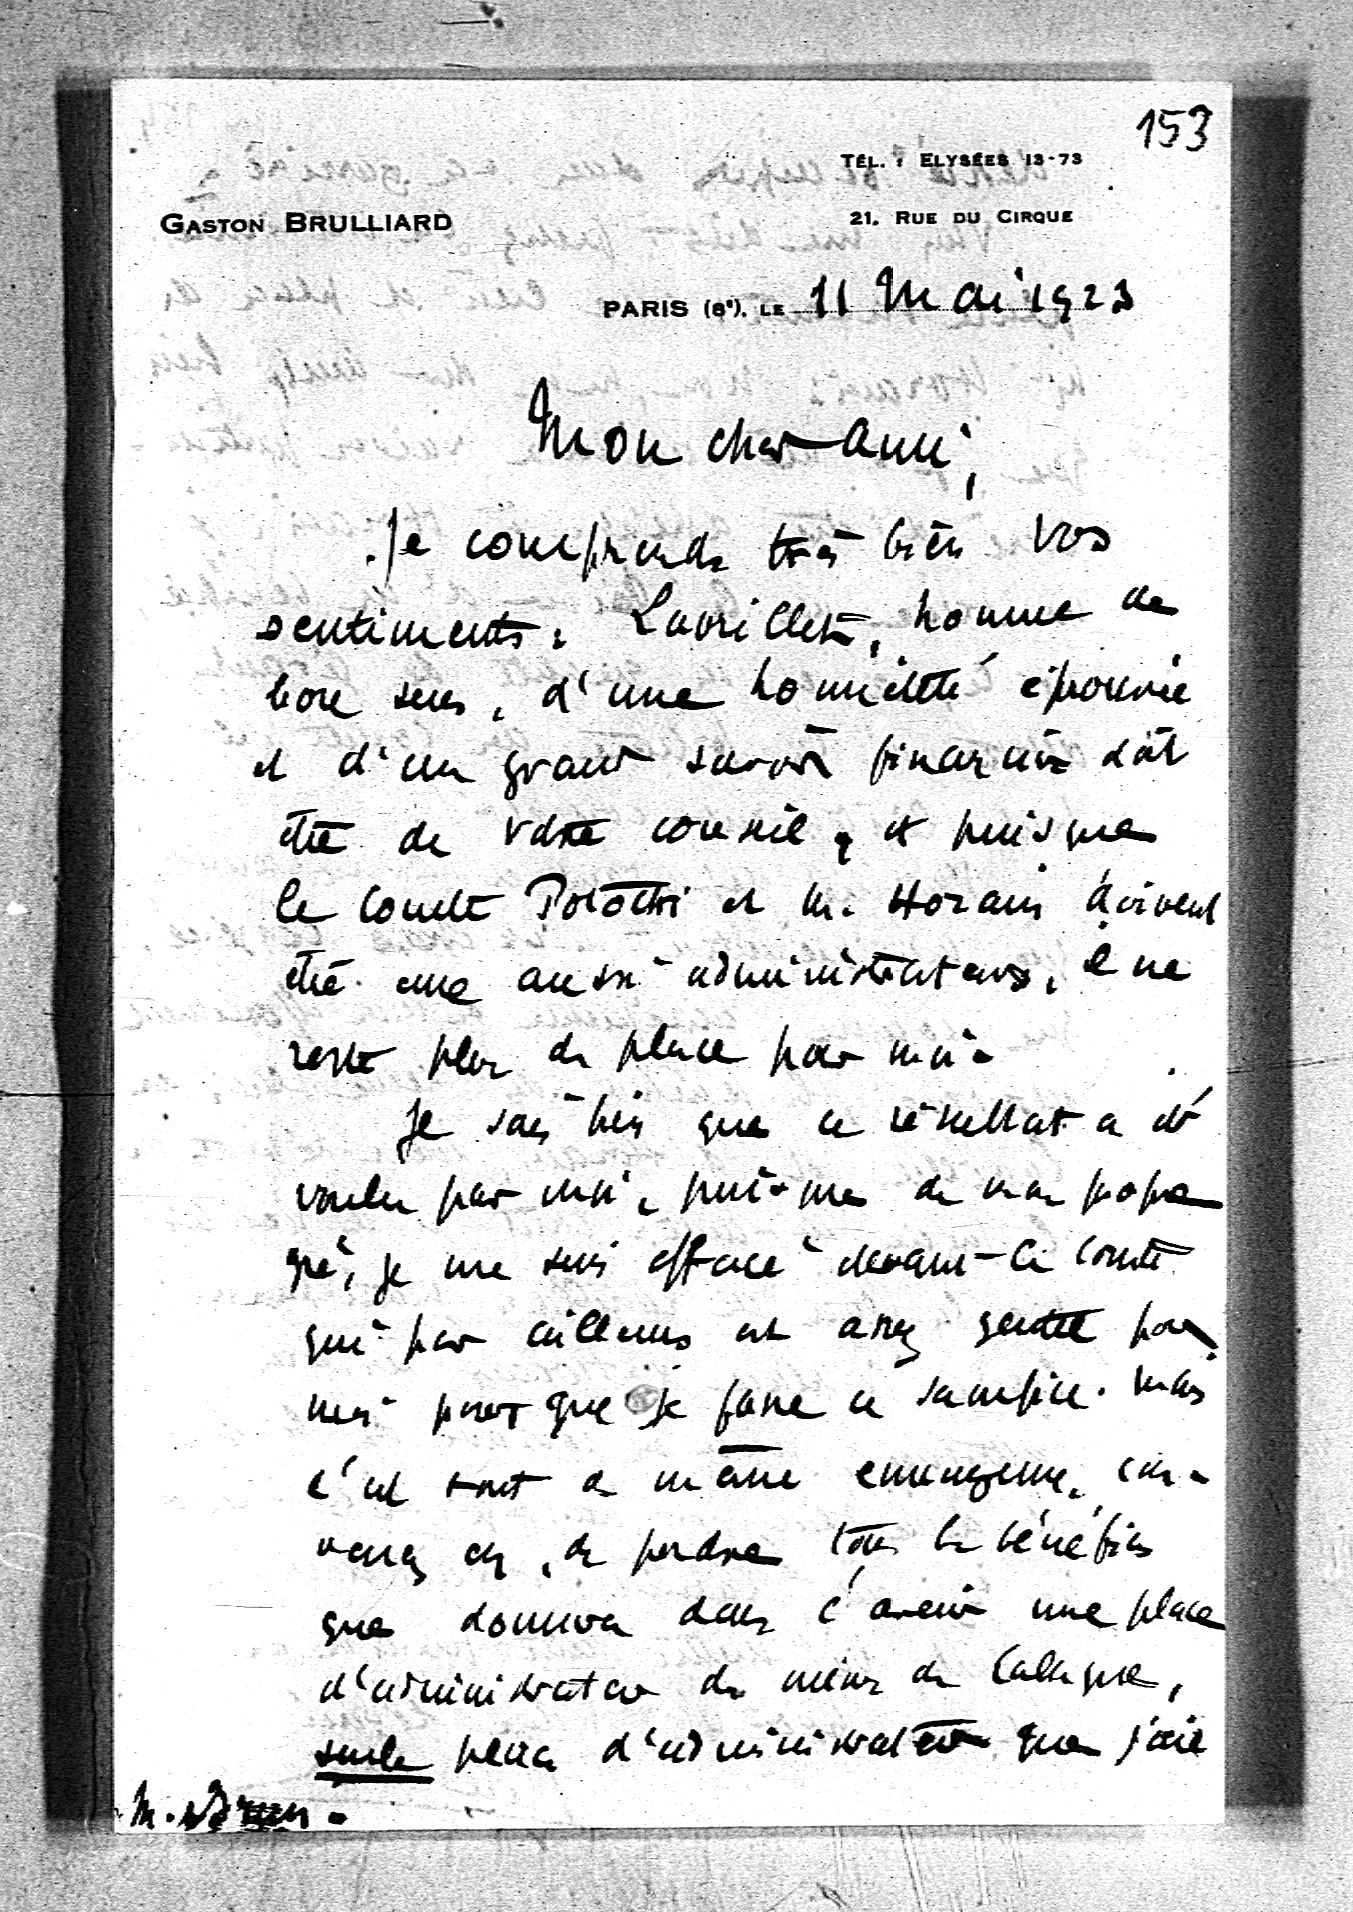 153
TÉL. : ELYSÉES 13-73
GASTON BRULLIARD
21, RUE DU CIRQUE
PARIS (8e). LE 11 Mai 1923
Mon cher ami,
Je comprends très bien vos
sentiments. Lavrillet, homme de
bon sens, d'une honnêteté éprouvée
et d'un grand savoir financier doit
être de votre conseil, et puisque
le Comte Potocki et M. Horain doivent
être eux aussi administrateurs, il ne
reste plus de place pour moi.
Je sais bien que ce résultat a été
voulu par moi, puisque de mon propre
gré, je me suis effacé devant le Comte
qui par ailleurs est assez gentil pour
moi pour que je fasse ce sacrifice. Mais
c'est tout de même ennuyeux, con-
venez en, de perdre tous les bénéfices
que donnera dans l'avenir une place
d'administrateur de mines de
seule place d'administrateur que j'aie
M.